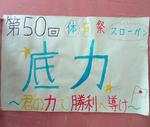 第50回 体育祭 スローガン
底力
〜君の力で勝利へ導け〜